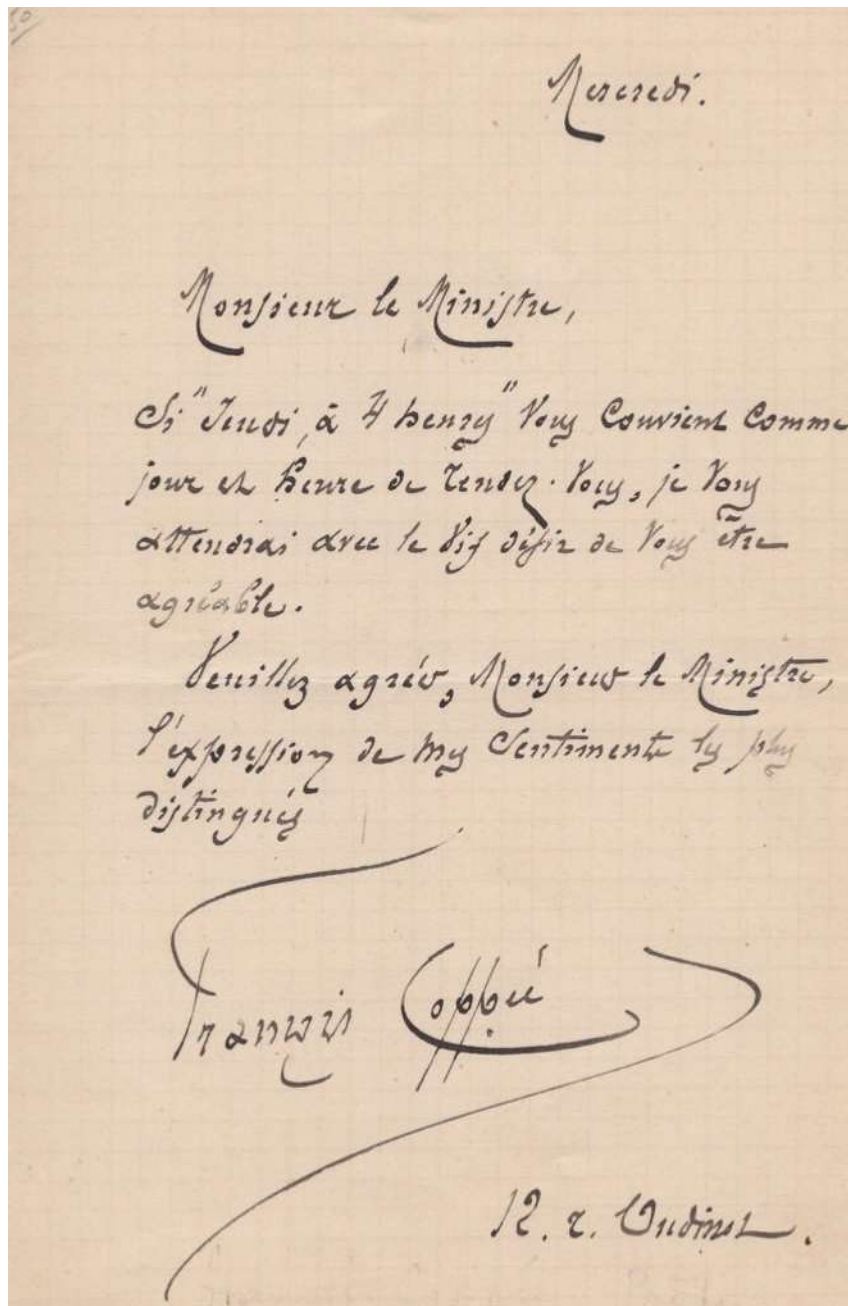 50
Mercredi.
Monsieur le Ministre,
Si "Jeudi, à 4 heures" vous convient comme
jour et heure de rendez-vous, je vous
attendrai avec le vif désir de vous être
agréable.
Veuillez agréer, Monsieur le Ministre,
l'expression de mes sentiments les plus
distingués
François Coppée
12. r. Oudinot.